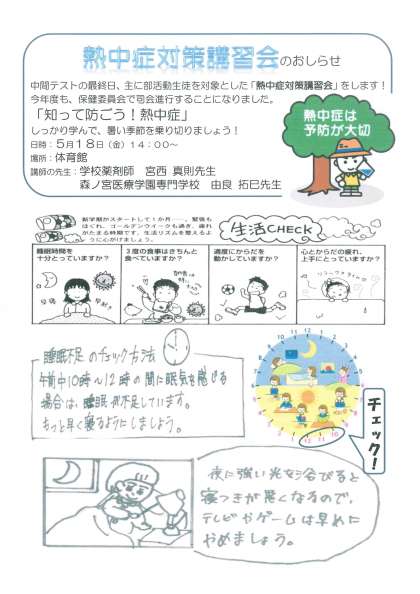 熱中症対策講習会のおしらせ
中間テストの最終日、主に部活動生徒を対象とした「熱中症対策講習会」をします！
今年度も、保健委員会で司会進行することになりました。
「知って防ごう！熱中症」
しっかり学んで、暑い季節を乗り切りましょう！
日時：５月１８日（金）１４：００～
場所：体育館
講師の先生：学校薬剤師　宮西　真則先生
森ノ宮医療学園専門学校　由良　拓巳先生
熱中症は
予防が大切
新学期がスタートして１か月……。緊張も
ほぐれ、ゴールデンウィークも過ぎ、疲れ
がたまる時期です。生活リズムを整えるよ
うに心がけましょう。
生活CHECK
睡眠時間を
十分とっていますか？
３度の食事はきちんと
食べていますか？
適度にからだを
動かしていますか？
心とからだの疲れ、
上手にとっていますか？
早寝
早起き
睡眠不足のチェック方法
午前中10時～12時の間に眠気を感じる
場合は、睡眠が不足しています。
もっと早く寝るようにしましょう。
チェック！
夜に強い光を浴びると
寝つきが悪くなるので、
テレビやゲームは早めに
やめましょう。